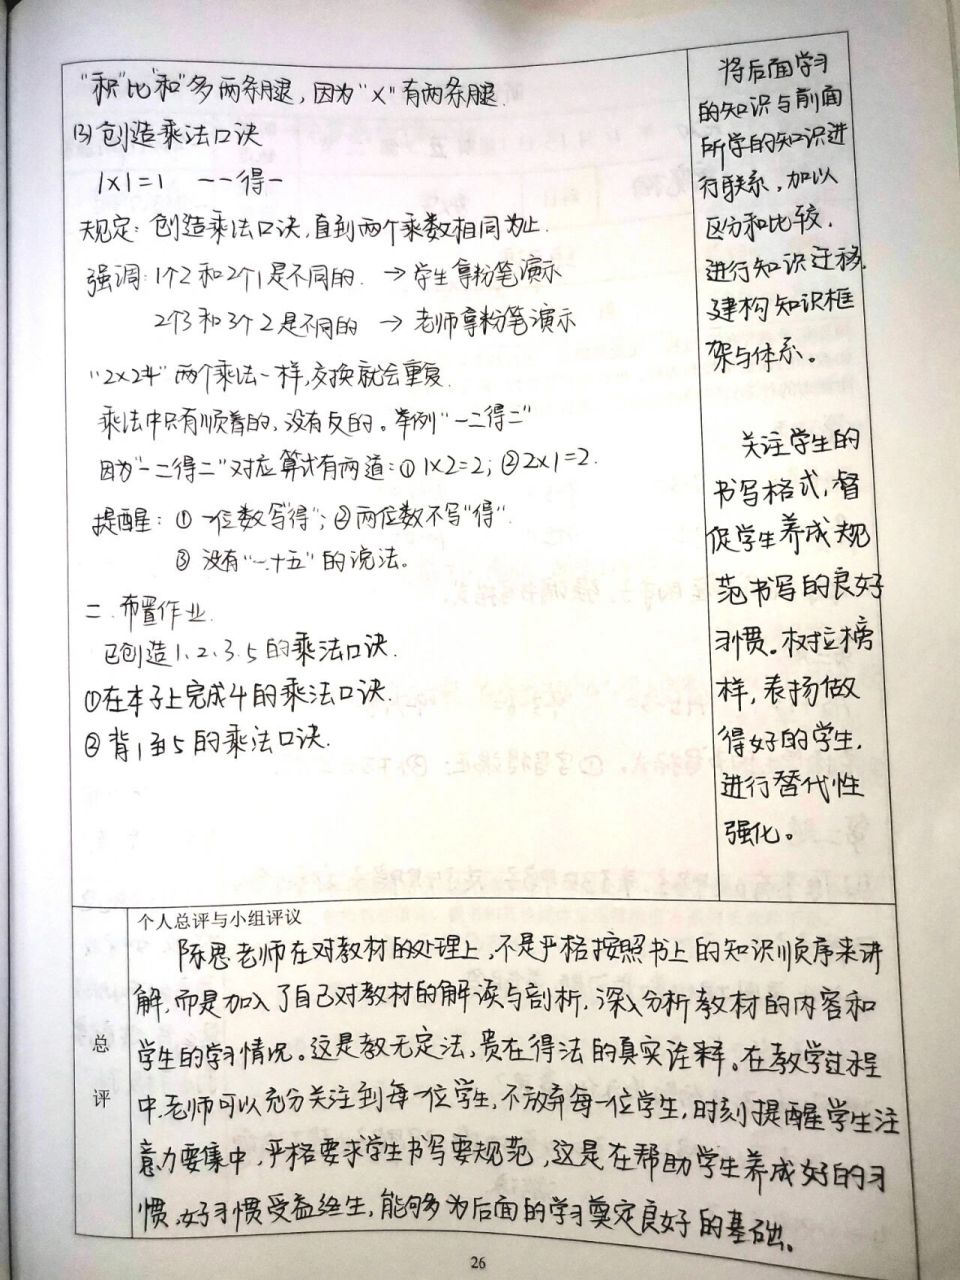 "积"比"和"多两条腿，因为"×"有两条腿.
(3)创造乘法口诀
1×1=1 一一得一
规定：创造乘法口诀，直到两个乘数相同为止.
强调：1个2和2个1是不同的. →学生拿粉笔演示
2个3和3个2是不同的 → 老师拿粉笔演示
"2×2=4"两个乘法一样，交换就会重复.
乘法中只有顺着的，没有反的。举例"一二得二"
因为"一二得二"对应算式有两道：①1×2=2；②2×1=2.
提醒：①一位数写"得"；②两位数不写"得".
③没有"一十五"的说法。
二.布置作业.
已创造1、2、3、5的乘法口诀.
①在本子上完成4的乘法口诀.
②背1到5的乘法口诀.
将后面学习
的知识与前面
所学的知识进
行联系，加以
区分和比较，
进行知识迁移，
建构知识框
架与体系。
关注学生的
书写格式，督
促学生养成规
范书写的良好
习惯。树立榜
样，表扬做
得好的学生，
进行替代性
强化。
总评
个人总评与小组评议
陈思老师在对教材的处理上，不是严格按照书上的知识顺序来讲
解，而是加入了自己对教材的解读与剖析，深入分析教材的内容和
学生的学习情况。这是教无定法，贵在得法的真实诠释。在教学过程
中，老师可以充分关注到每一位学生，不放弃每一位学生，时刻提醒学生注
意力要集中，严格要求学生书写要规范，这是在帮助学生养成好的习
惯，好习惯受益终生，能够为后面的学习奠定良好的基础。
26